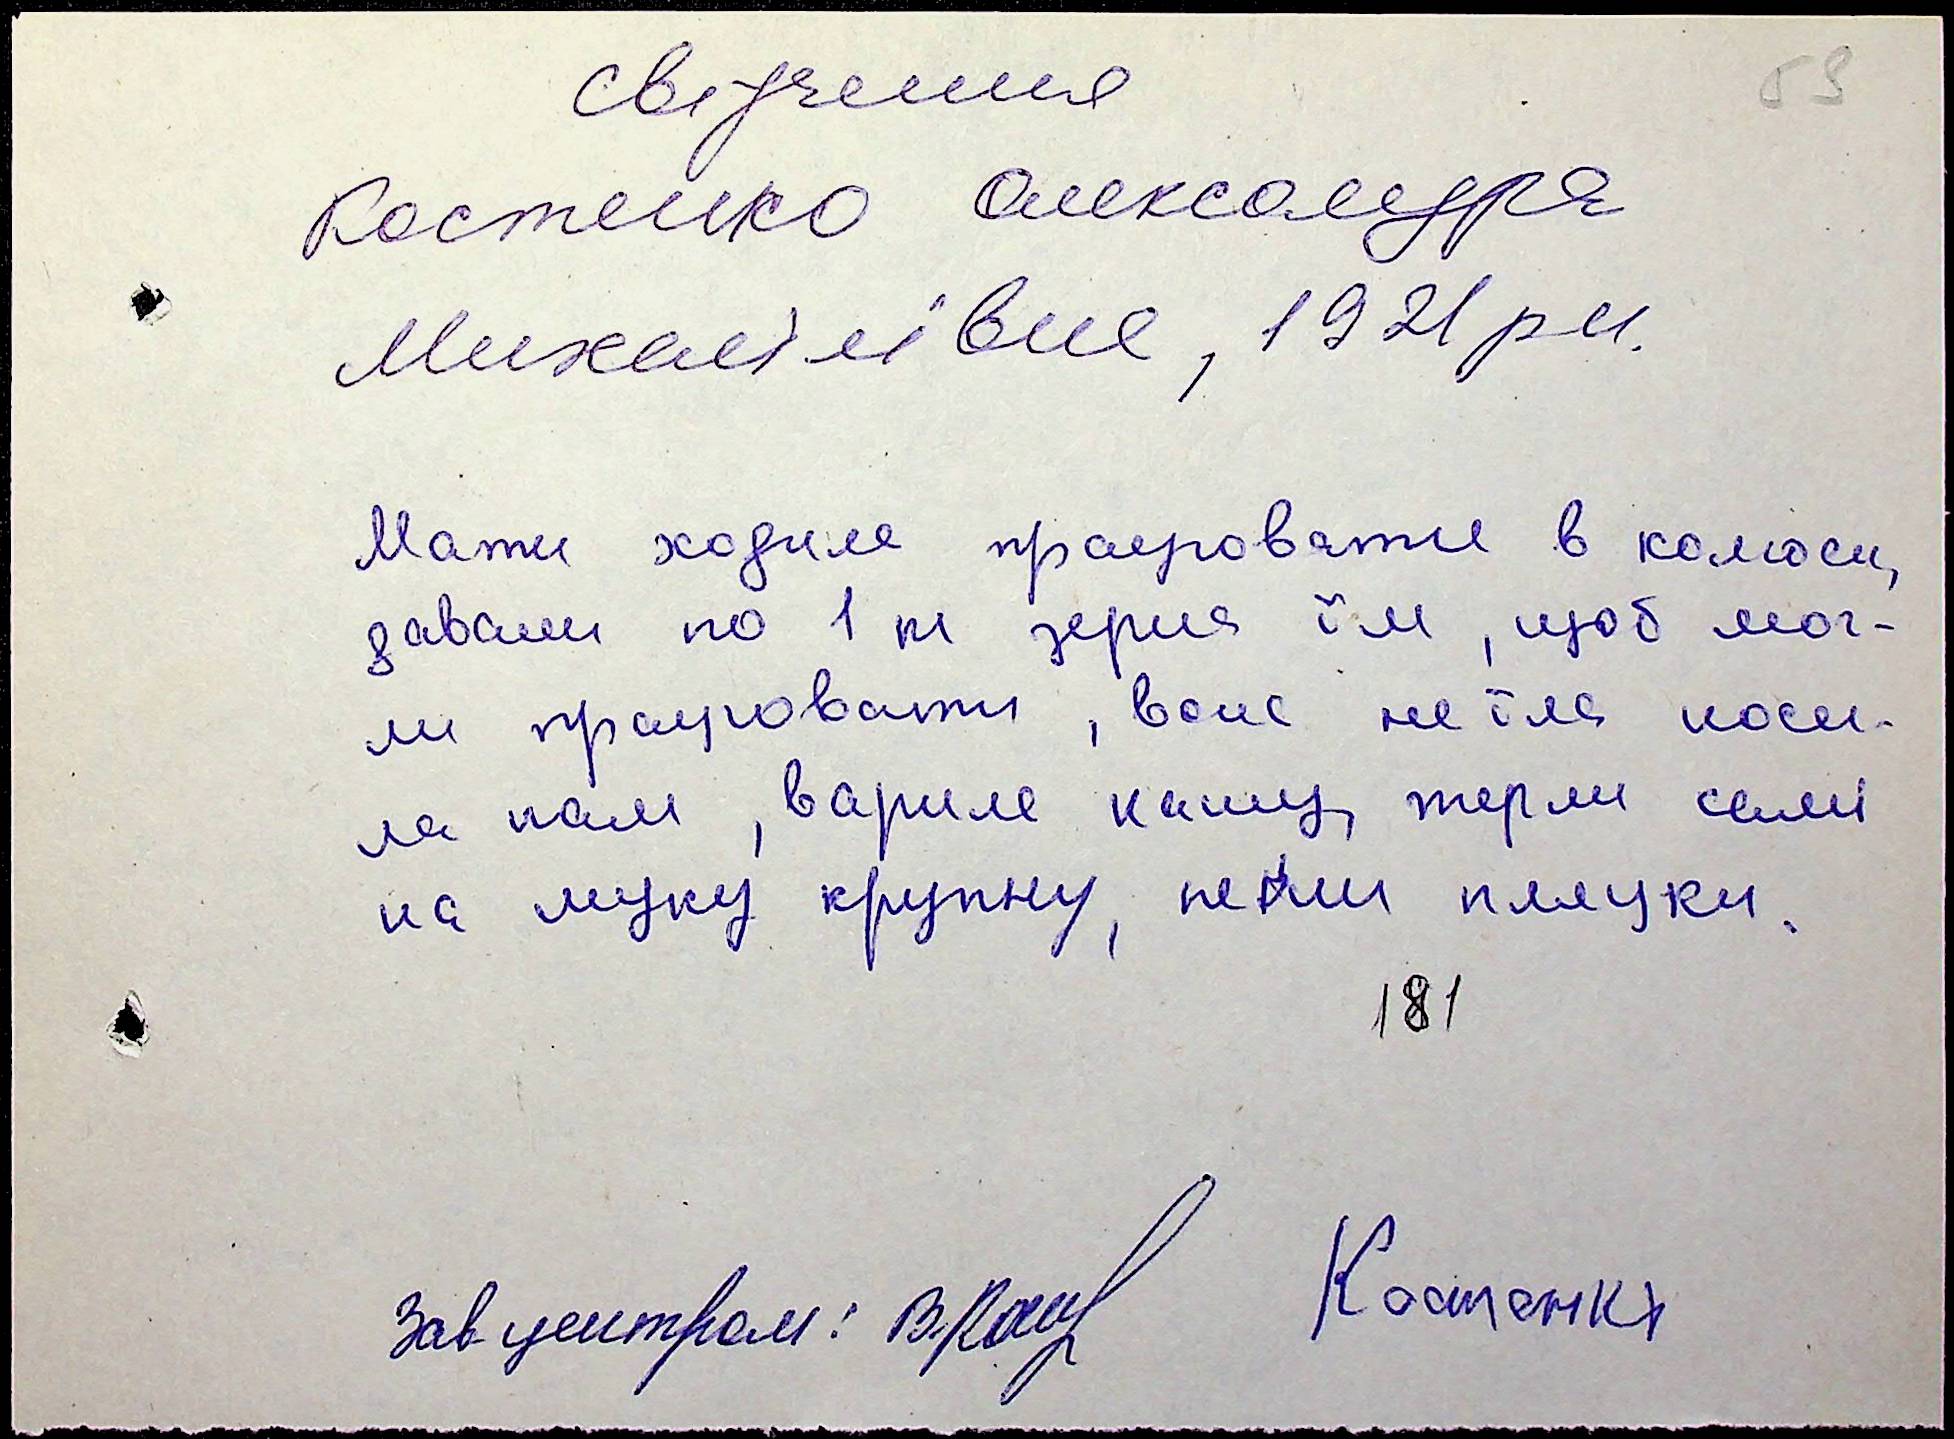 59
Свідчення
Костенко Олександра
Михайлівна, 1921 р н.
Мати ходила працювати в колгосп,
давали по 1 кг зерна їм, щоб мог-
ли працювати, вона не їла носи-
ла нам, варила кашу, терли самі
на муку крупну, пекли пляцки.
181
Зав центром:
Костенко